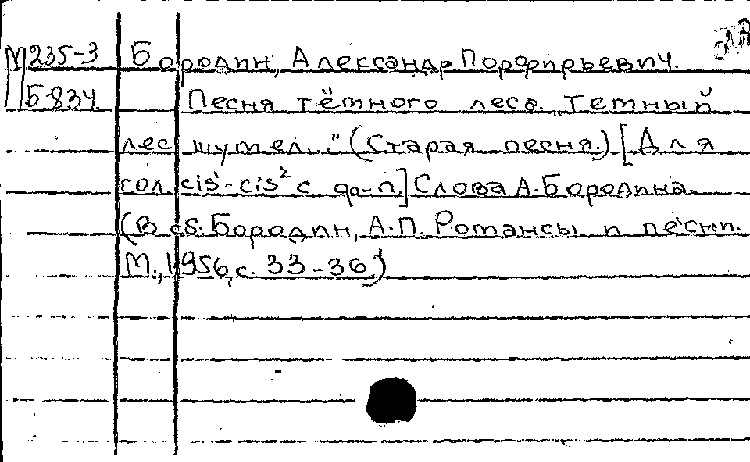 М 235-3 Бородин, Александр Порфирьевич.
Б-834 Песня тёмного леса. "Темный
лес шумел..." (Старая песня.) [Для
гол. cis¹-cis² с ф-п.] Слова А. Бородина.
(В сб: Бородин, А.П. Романсы и песни.
М., 1956, с. 33-36)